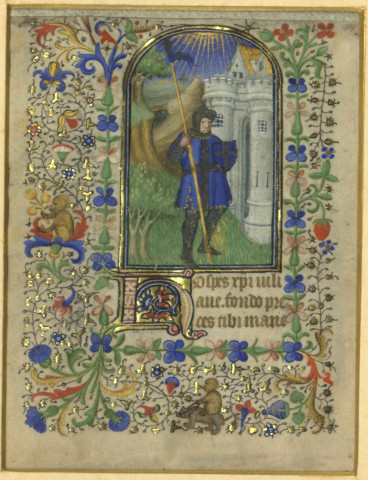 Hospes xpi iuli
ane. fondo pre
ces tibi mane